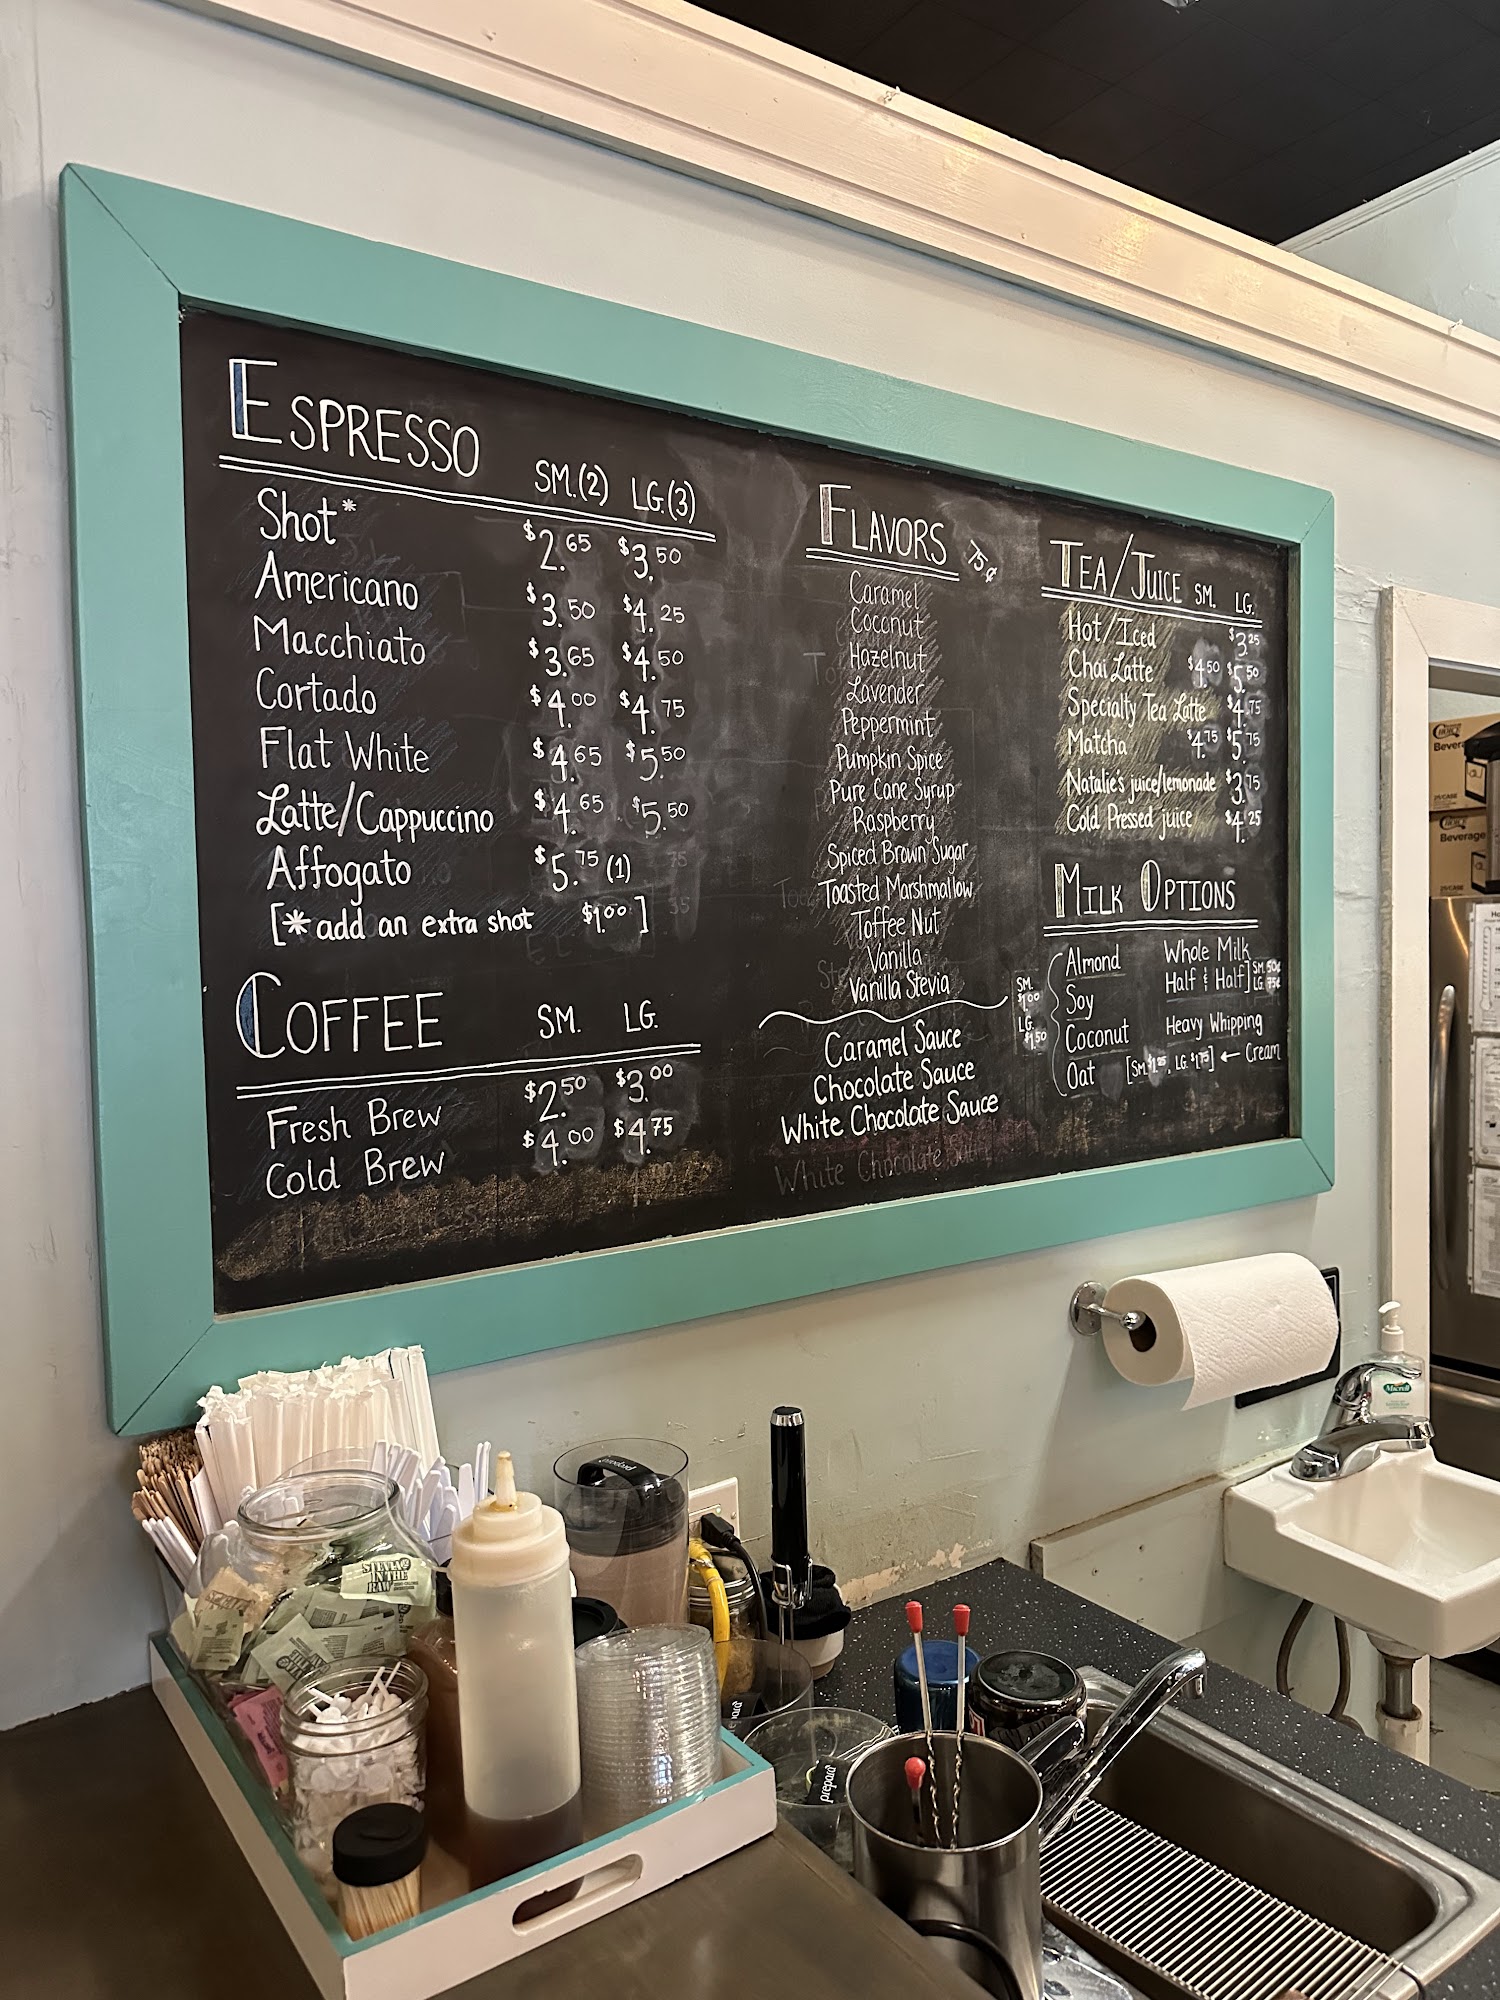 ESPRESSO SM.(2) LG.(3)
Shot* $2.65 $3.50
Americano $3.50 $4.25
Macchiato $3.65 $4.50
Cortado $4.00 $4.75
Flat White $4.65 $5.50
Latte/Cappuccino $4.65 $5.50
Affogato $5.75 (1)
[* add an extra shot $1.00]
COFFEE SM. LG.
Fresh Brew $2.50 $3.00
Cold Brew $4.00 $4.75
FLAVORS 75¢
Caramel
Coconut
Hazelnut
Lavender
Peppermint
Pumpkin Spice
Pure Cane Syrup
Raspberry
Spiced Brown Sugar
Toasted Marshmallow
Toffee Nut
Vanilla
Vanilla Stevia
Caramel Sauce
Chocolate Sauce
White Chocolate Sauce
White Chocolate
TEA/JUICE SM. LG.
Hot/Iced $3.25
Chai Latte $4.50 $5.50
Specialty Tea Latte $4.75
Matcha $4.75 $5.75
Natalie's juice/lemonade $3.75
Cold Pressed juice $4.25
MILK OPTIONS
SM. $1.00
LG. $1.50
Almond
Soy
Coconut
Oat
Whole Milk
Half & Half] SM. 50¢ LG. 75¢
Heavy Whipping
[SM. $1.25, LG. $1.75] ← Cream
CHOICE
Beverage
25/CASE
CHOICE
Beverage
25/CASE
Micrell
STEVIA
IN THE
RAW
prepara
prepara
prepara